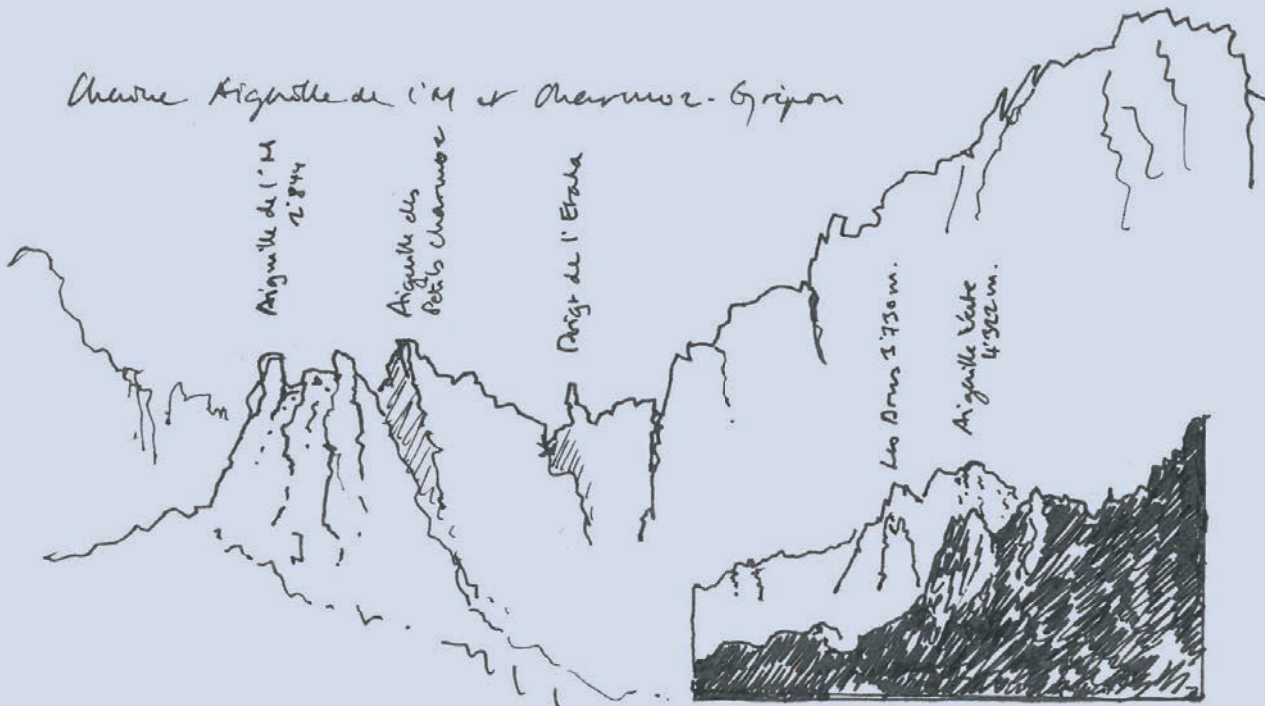 Chaine Aiguille de l'M et Charmoz-Gripon
Aiguille de l'M
2'844
Aiguille des
Petits Charmoz
Doigt de l'Etala
Les Drus 3'730m.
Aiguille Verte
4'322m.